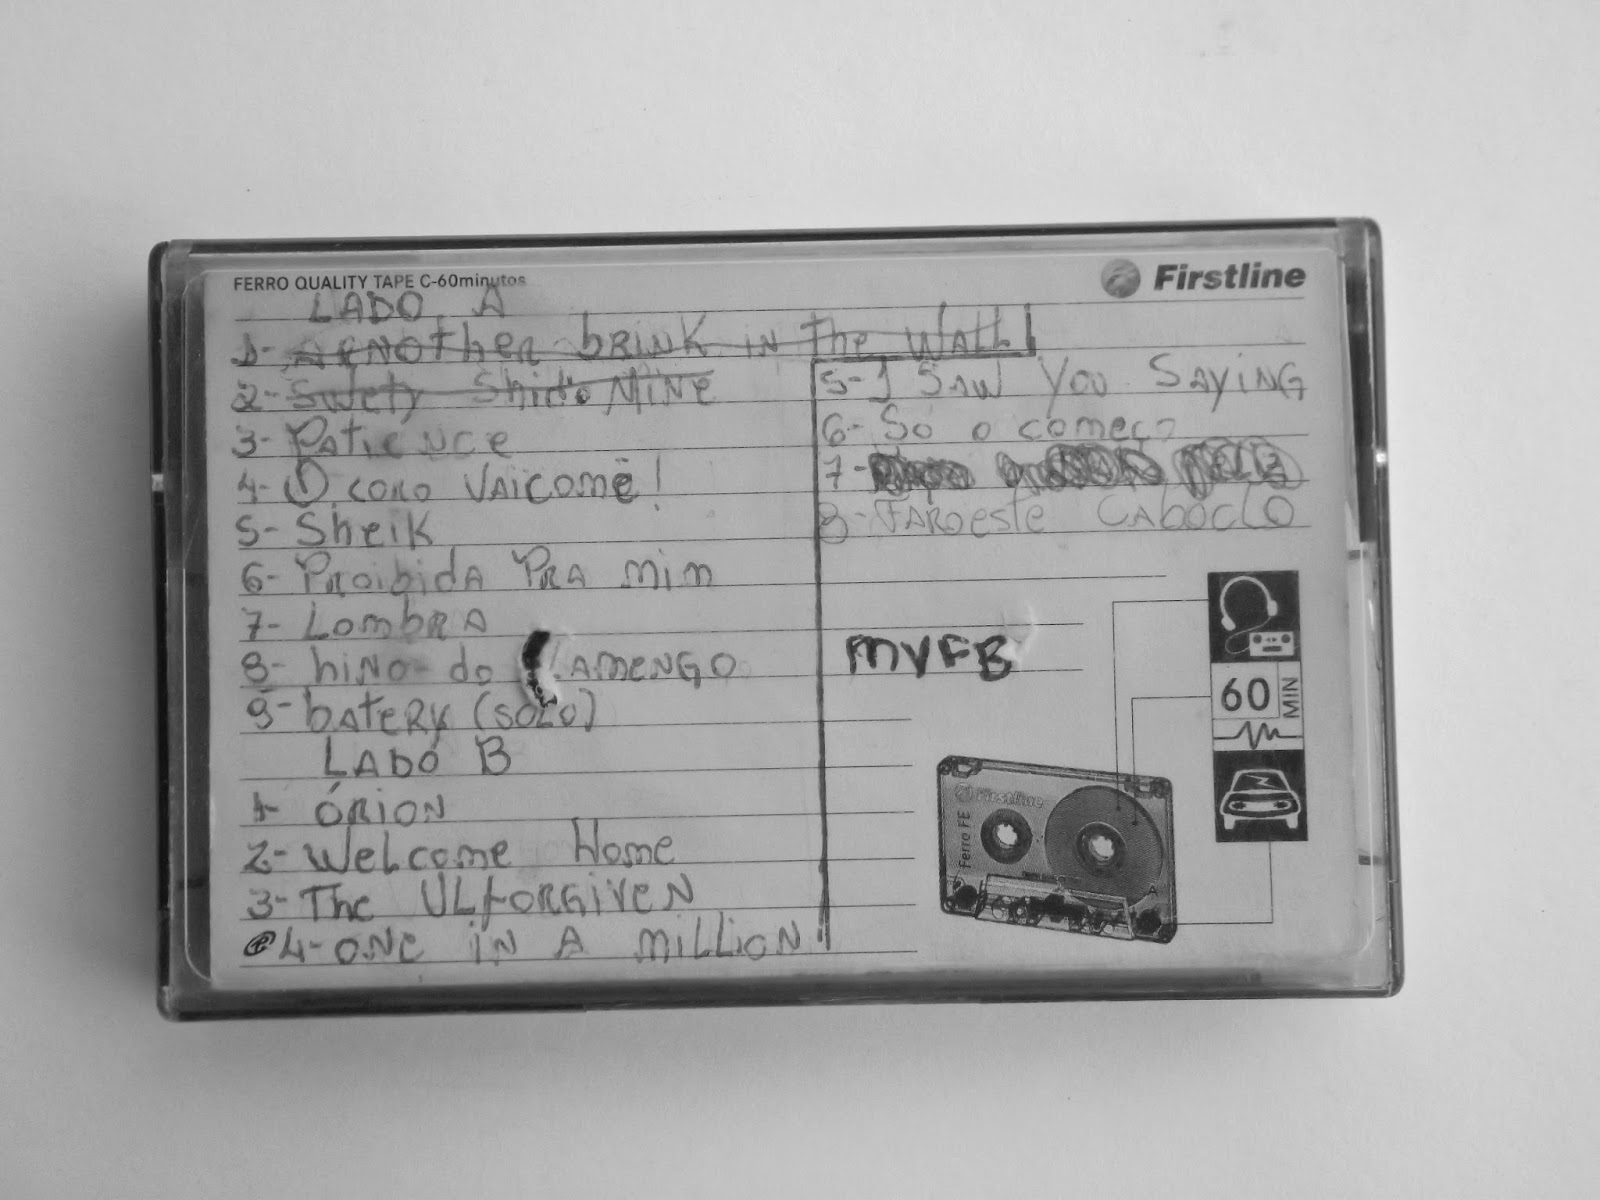 FERRO QUALITY TAPE C-60minutos
Firstline
LADO A
1- ANOTHER BRINK IN The WALL
2- Swety Shido MINE
3- Patience
4- O coro VAIcomê!
5- Sheik
6- Proibida PRA mim
7- LombRA
8- hiNo do LAMENGO
9- bATERY (SOLO)
LADO B
1- ÓRION
2- Welcome Home
3- The ULfORGIVEN
4- ONE IN A MILLION
5- I SAW YOU SAYING
6- Só o começo
7-
8- FAROESTE CAboclO
MVFB
60 MIN
Firstline
Ferro FE
A